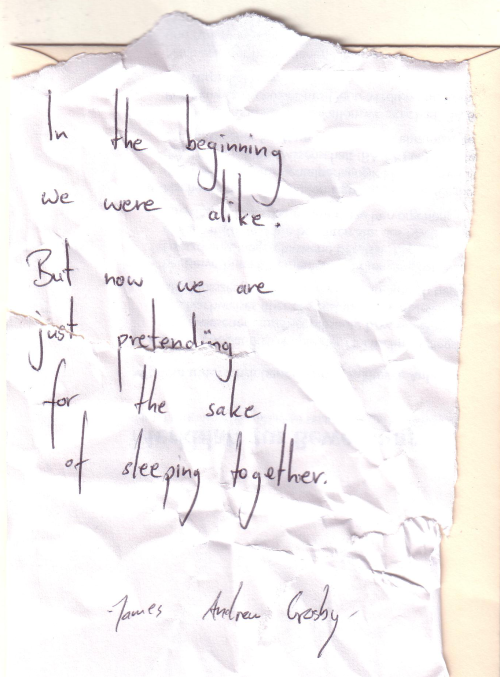 In the beginning
we were alike.
But now we are
just pretending
for the sake
of sleeping together.
-James Andrew Crosby-